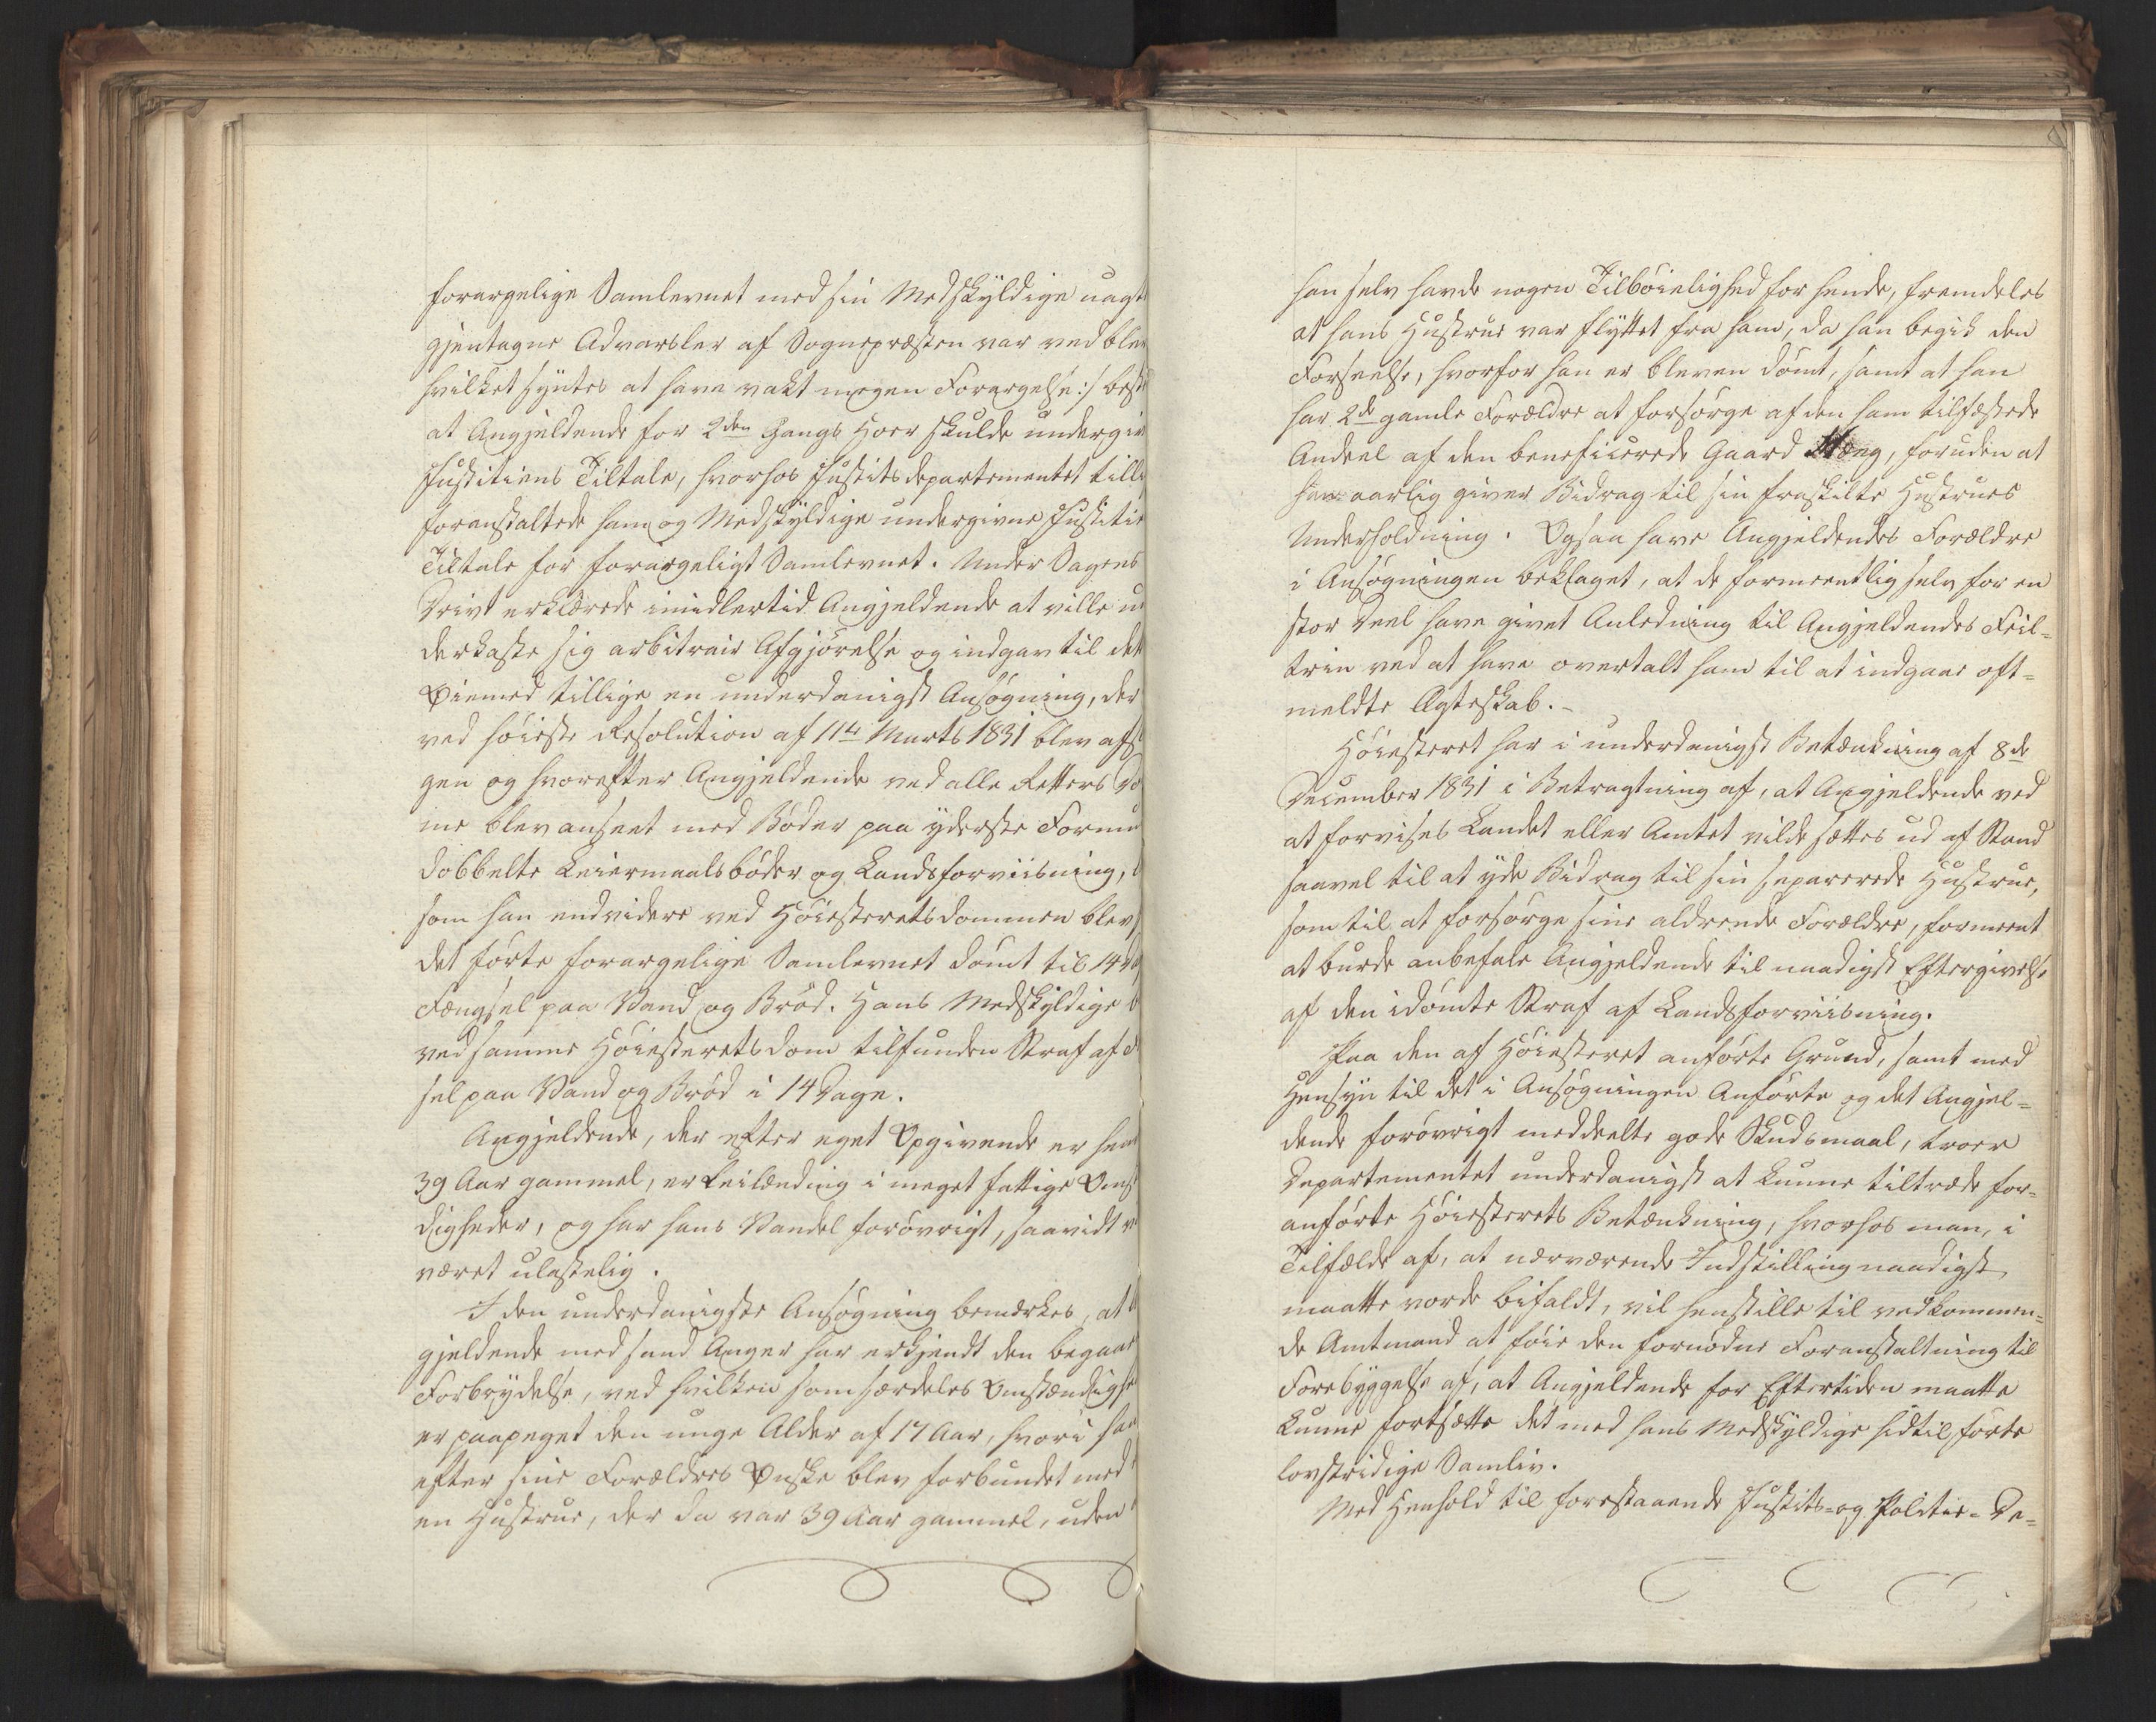 forargelige Samlevnet med sin Medskyldige uagt
gjentagne Advarsler af Sognepræsten var vedblev
hvilket syntes at have vakt megen Forargelse :/ best
at Angjeldende for 2den Gangs Hoer skulde undergiv
Justitiens Tiltale, hvorhos Justitsdepartementet till
foranstaltede ham og Medskyldige undergivne Justitie
Tiltale for forargeligt Samlevnet. Under Sagens
Drivt erklærede imidlertid Angjeldende at ville u
derkaste sig arbitrair Afgjørelse og indgav til det
Øiemed tillige en underdanigst Ansøgning, der
ved høieste Resolution af 11te Marts 1831 blev afs
gen og hvorefter Angjeldende ved alle Retters Do
me blev anseet med Bøder paa yderste Formu
dobbelte Leiermaalsbøder og Landsforviisning,
som han endvidere ved Høiesteretsdommen blev
det førte forargelige Samlevnet dømt til 14 D
Fængsel paa Vand og Brød. Hans Medskyldige b
ved samme Høiesteretsdom tilfunden Straf af F
sel paa Vand og Brød i 14 Dage.
Angjeldende, der efter eget Opgivende er hen
39 Aar gammel, er Leilænding i meget fattige Omst
digheder, og har hans Vandel forøvrigt, saavidt v
været ulastelig.
I den underdanigste Ansøgning bemærkes, at
gjeldende med sand Anger har erkjendt den begaae
Forbrydelse, ved hvilken som særdeles Omstændighe
er paapeget den unge Alder af 17 Aar, hvori han
efter sine Forældres Ønske blev forbundet med
en Hustrue, der da var 39 Aar gammel, uden
han selv havde nogen Tilbøielighed for hende, fremdeles
at hans Hustrue var flyttet fra ham, da han begik den
Forseelse, hvorfor han er bleven dømt, samt at han
har 2de gamle Forældre at forsørge af den ham tilfæstede
Andeel af den beneficerede Gaard Stæng, foruden at
han aarlig giver Bidrag til sin fraskilte Hustrues
Underholdning. Ogsaa have Angjeldendes Forældre
i Ansøgningen beklaget, at de formeentlig selv for en
stor Deel have givet Anledning til Angjeldendes Feil=
trin ved at have overtalt ham til at indgaae oft=
meldte Ægteskab. -
Høiesteret har i underdanigst Betænkning af 8de
December 1831 i Betragtning af, at Angjeldende ved
at forvises Landet eller Amtet vilde sættes ud af Stand
saavel til at yde Bidrag til sin separerede Hustrue,
som til at forsørge sine aldrende Forældre, formeent
at burde anbefale Angjeldende til naadigst Eftergivelse
af den idømte Straf af Landsforviisning.
Paa den af Høiesteret anførte Grund, samt med
Hensyn til det i Ansøgningen Anførte og det Angjel=
dende forøvrigt meddeelte gode Skudsmaal, troer
Departementet underdanigst at kunne tiltræde for=
anførte Høiesterets Betænkning, hvorhos man, i
Tilfælde af, at nærværende Indstilling naadigst
maatte vorde bifaldt, vil henstille til vedkommen=
de Amtmand at føie den fornødne Foranstaltning til
Forebyggelse af, at Angjeldende for Eftertiden maatte
kunne fortsætte det med hans Medskyldige hidtil førte
lovstridige Samliv.
Med Henhold til forestaaende Justits- og Politie- De=